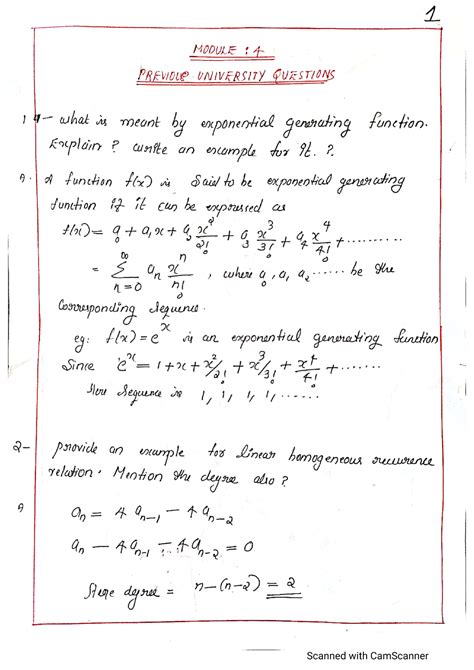 1
MODULE : 4
PREVIOUS UNIVERSITY QUESTIONS
1 Q- what is meant by exponential generating function.
Explain ? write an example for it. ?
A. A function f(x) is said to be exponential generating
function if it can be expressed as
f(x) = a₀ + a₁x + a₂ x²/2! + a₃ x³/3! + a₄ x⁴/4! + ........
= ∞ Σ n=0 aₙ xⁿ/n! , where a₀, a₁, a₂ ...... be the
Corresponding Sequence.
eg: f(x) = eˣ is an exponential generating function
Since eˣ = 1 + x + x²/2! + x³/3! + x⁴/4! + .......
Here Sequence is 1, 1, 1, 1, ......
2- Provide an example for linear homogeneous recurrence
relation. Mention the degree also ?
A aₙ = 4 aₙ₋₁ - 4 aₙ₋₂
aₙ - 4aₙ₋₁ - 4aₙ₋₂ = 0
Here degree = n-(n-2) = 2
Scanned with CamScanner